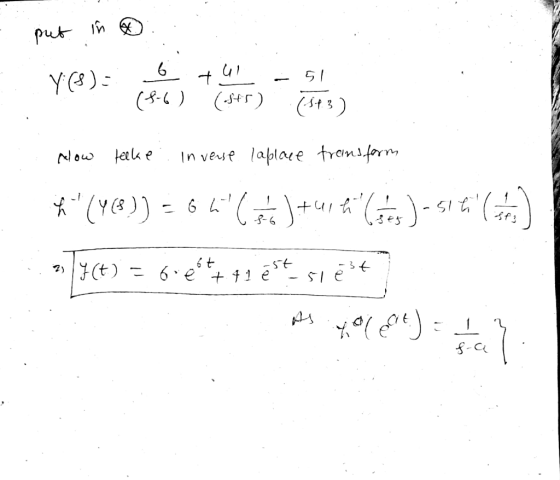 put in ⊛
Y(s) = 6/(s-6) + 41/(s+5) - 51/(s+3)
Now take inverse laplace transform
L⁻¹(Y(s)) = 6 L⁻¹(1/(s-6)) + 41 L⁻¹(1/(s+5)) - 51 L⁻¹(1/(s+3))
⇒ y(t) = 6·e^{6t} + 41 e^{-5t} - 51 e^{-3t}
As L(e^{at}) = 1/(s-a) }.